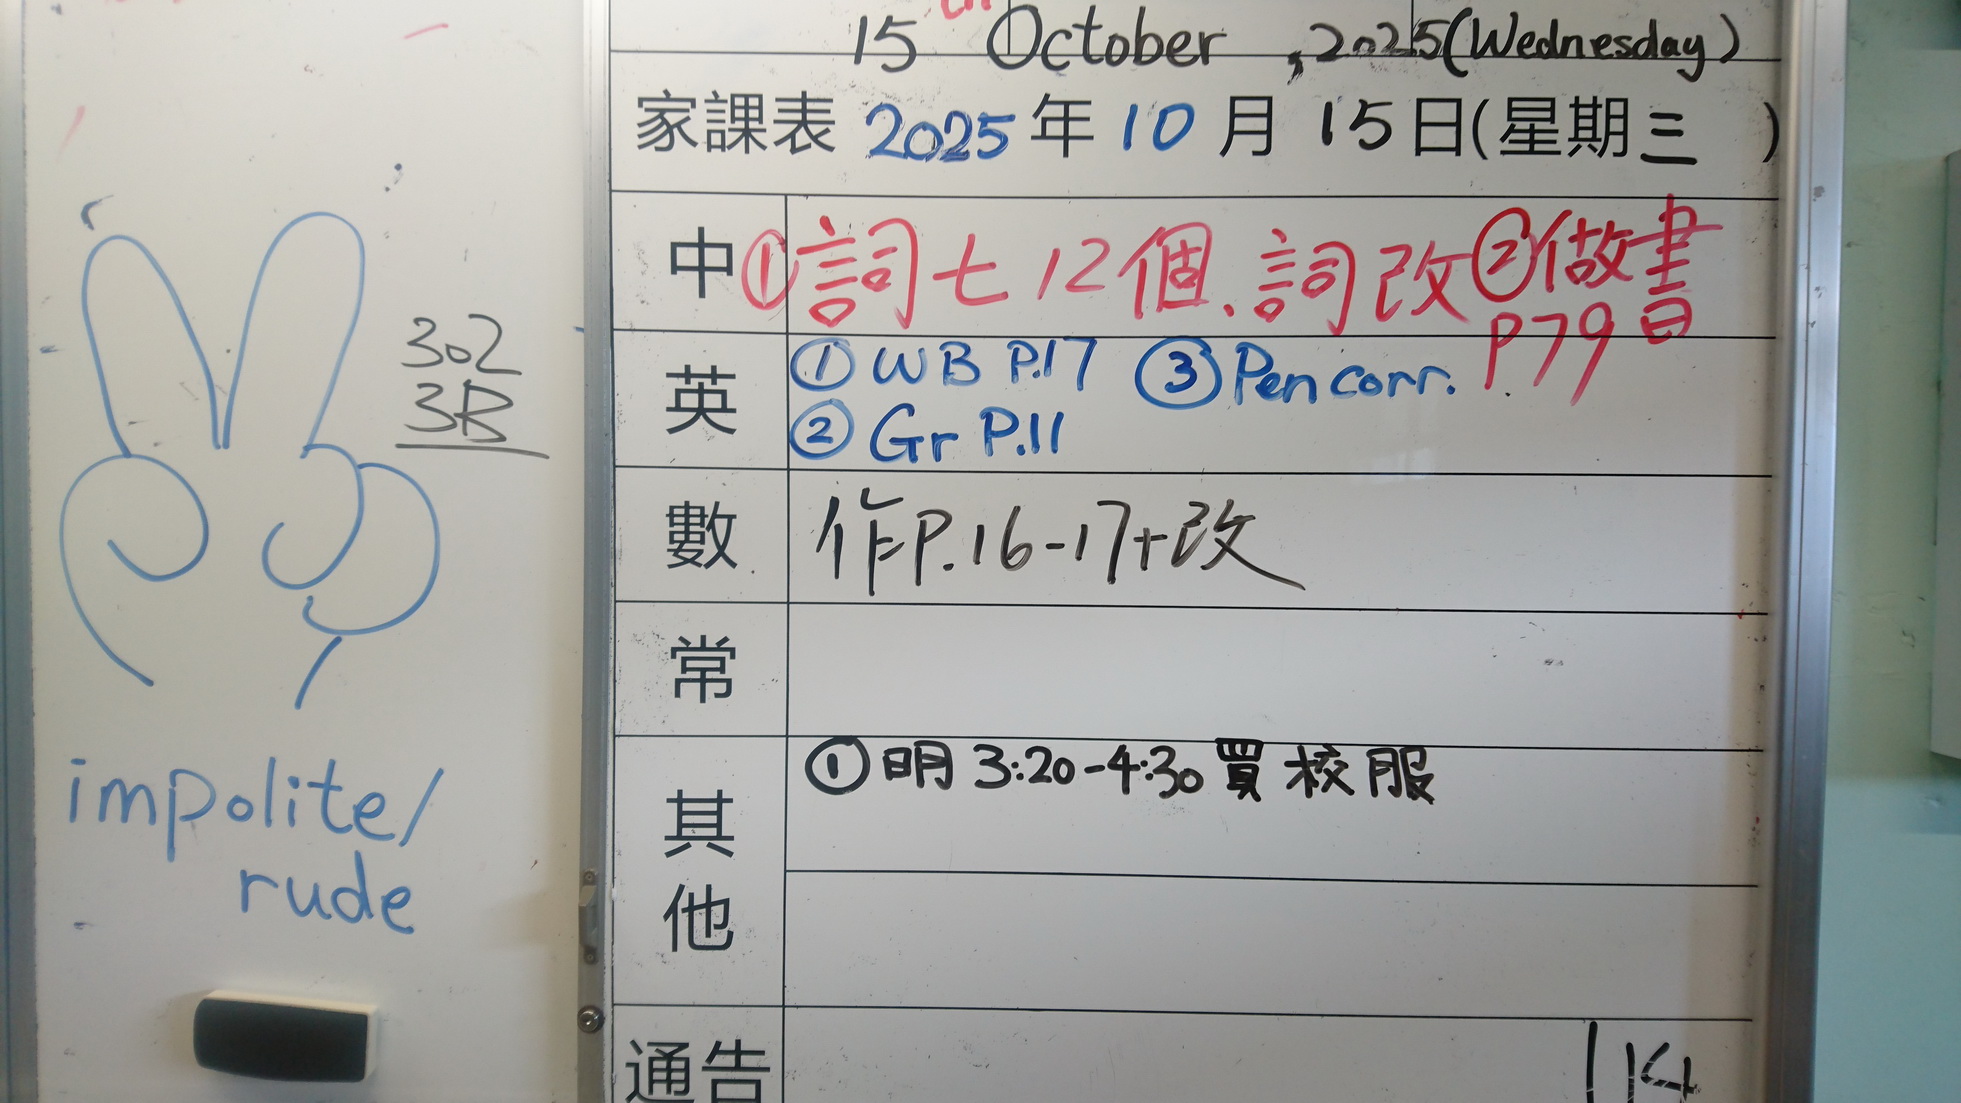 302
3B
impolite/
rude
15th October, 2025(Wednesday)
家課表 2025年10月15日(星期三 )
中 ①詞七12個、詞改②做書
P79
英 ①WB P.17 ③Pen corr.
②Gr P.11
數 作P.16-17+改
常
其他 ①明3:20-4:30買校服
通告